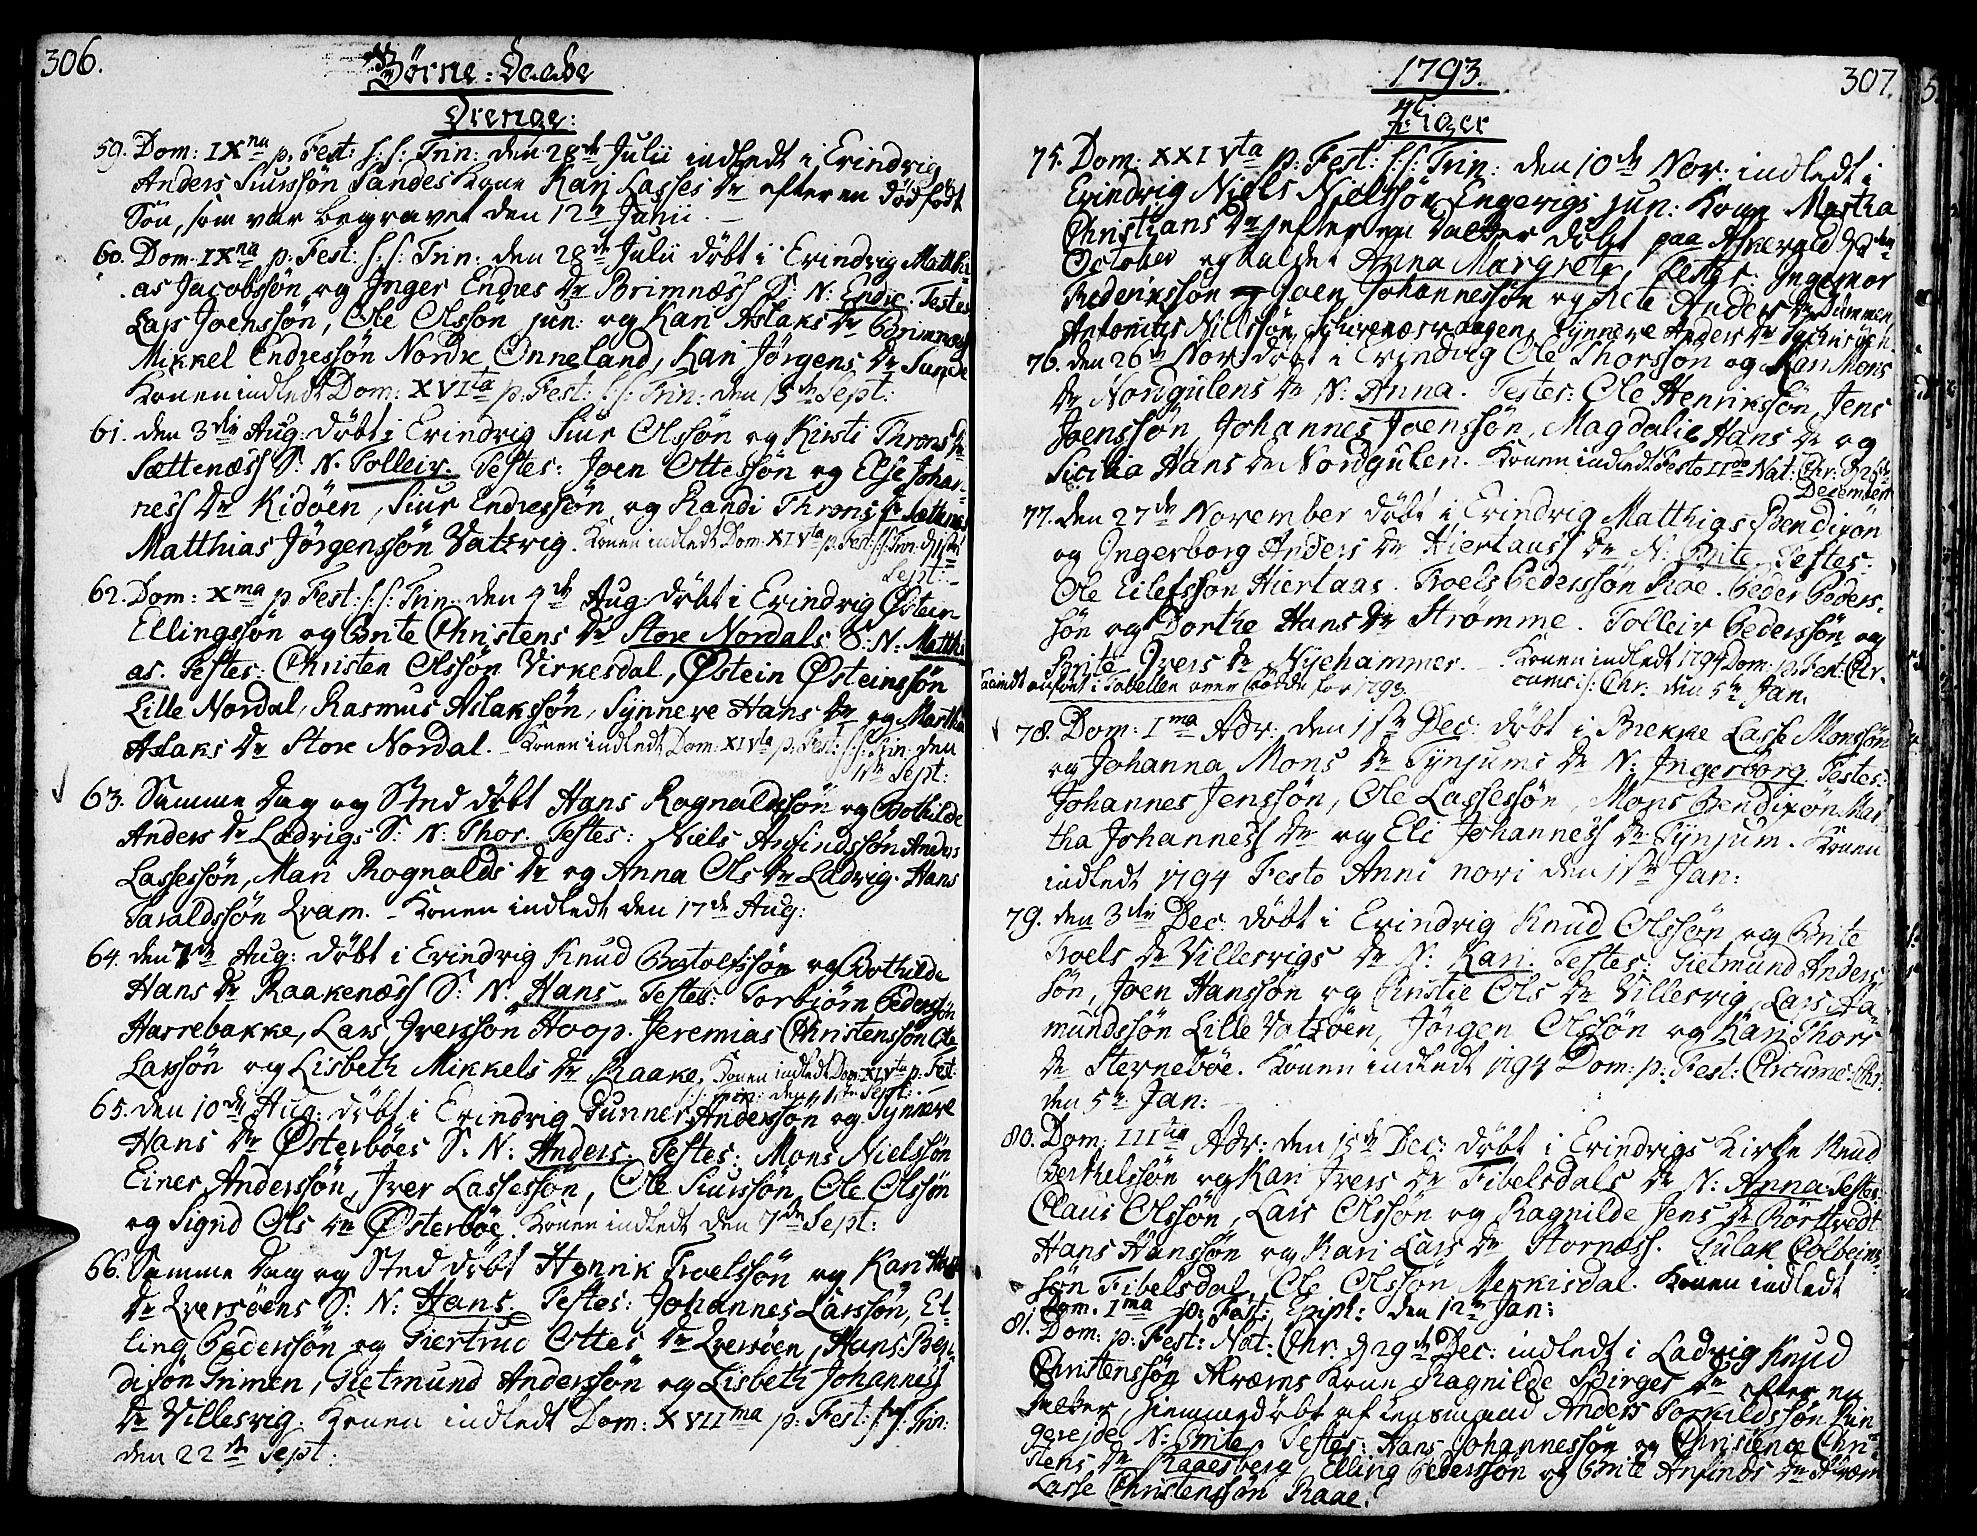 306.
Børne-Daabe
Drenge:
59. Dom: IXna p. Fest: s:s: Trin: den 28de Julii indledt i Evindvig
Anders Siurssøn Sandes Kone Kari Lasses Dr efter en dødfødt
Søn, som var begravet den 12te Junii. –
60. Dom. IXna p. Fest: s:s: Trin: den 28de Julii døbt i Evindvig Matthi-
as Jacobssøn og Inger Endres Dr Brimnæss S: N: Endre. Testes
Lars Joenssøn, Ole Olssøn jun: og Kari Aslaks Dr Brimnæss
Mikkel Endressøn Nordre Onneland, Kari Jørgens Dr Sande
Konen indledt Dom: XVIta p: Fest: s:s: Trin: den 15de Sept:
61. den 3die Aug: døbt i Evindvig Siur Olssøn og Kirsti Throns Dr
Sættenæss S: N: Tolleiv. Testes: Joen Ottessøn og Else Johan-
ness Dr Kidøen, Siur Endressøn og Randi Throns Dr Sættenæs
Matthias Jørgenssøn Vatsvig. Konen indledt Dom: XIVta p: Fest: s:s: Trin: d. 1ste
Sept:
62. Dom: Xma p. Fest: s:s: Trin: den 4de Aug døbt i Evindvig Østein
Ellingssøn og Brite Christens Dr Store Nordals S: N: Matthi-
as. Testes: Christen Olssøn Virkesdal, Østein Østeinssøn
Lille Nordal, Rasmus Aslakssøn, Synneve Hans Dr og Martha
Aslaks Dr Store Nordal. – Konen indledt Dom: XIVta p: Fest: s:s: Trin: den
1ste Sept:
63. Samme Dag og Sted døbt Hans Rognaldssøn og Bothilde
Anders Dr Ladvigs S: N: Thor. Testes: Niels Anfindssøn Anders
Lassessøn, Mari Rognalds Dr og Anna Ols Dr Ladvig. Hans
Taraldssøn Qvam. – Konen indledt den 17de Aug:
64. den 7de Aug: døbt i Evindvig Knud Bastolfssøn og Bothilde
Hans Dr Raakenæss S: N: Hans Testes: Torbiørn Pederssøn
Harrebakke, Lars Iverssøn Hoop. Jeremias Christenssøn Ole
Larssøn og Lisbeth Mikkels Dr Raake. Konen indledt Dom: XIVta p. Fest:
s:s: Trin: den 1ste Sept:
65. den 10de Aug: døbt i Evindvig Gunner Anderssøn og Synneve
Hans Dr Østerbøes S: N: Anders. Testes: Mons Nielssøn
Einer Anderssøn, Iver Lassessøn, Ole Siurssøn, Ole Olssøn
og Sigrid Ols Dr Østerbøe. Konen indledt den 7de Sept:
66. Samme Dag og Sted døbt Henrik Troelssøn og Kari Hans
Dr Qversøens S: N: Hans. Testes: Johannes Larssøn, El-
ling Pederssøn og Giertrud Ottes Dr Qversøen, Hans Ben-
dixøn Grimen, Gietmund Anderssøn og Lisbeth Johanness
Dr Villesvig. Konen indledt Dom: XVIIma p: Fest: s:s: Trin:
den 22de Sept:
1793.
307.
Piger
75. Dom: XXIVta p: Fest: s:s: Trin: den 10de Nov: indledt i
Evindvig Niels Nielssøn Engevigs jun: Kone Martha
Christians Dr efter en datter døbt paa Askevold
October og kaldet Anna Margrete, Testes: Ingemor
Rederikssøn Joen Johannessøn og Anders Dr Dummen,
Antonius Nielssøn, Synneve Anders Dr
76. den 26de Nov: døbt i Evindvig Ole Thorssøn og Kari Mons
Dr Nordgulens Dr N: Anna. Testes: Ole Henrikssøn, Jens
Joenssøn, Johannes Joenssøn, Magdalie Hans Dr og
Sicilia Hans Dr Nordgulen. Konen indledt Festo IIdo Nat: Chr: d. 26de
December
77. den 27de November døbt i Evindvig Matthias Bendixøn
og Ingerborg Anders Dr Hiertaass Dr N: Brite. Testes:
Ole Eilefssøn Hiertaas. Troels Pederssøn Roe. Peder Peders-
søn og Dorthe Hans Dr Strømme. Tolleiv Pederssøn og
Brite Ivers Dr Nyehammer. – Konen indledt 1794 Dom: p: Fest: Cir-
cums: Chr: den 5te Jan:
anført i Tabellen over fødde for 1793
78. Dom: Ima Adv: den 1ste Dec: døbt i Brekke Lasse Monssøn
og Johanna Mons Dr Synjums Dr N: Ingerborg Testes:
Johannes Jenssøn, Ole Lassessøn, Mons Bendixøn Mar-
tha Johanness Dr og Eli Johanness Dr Synjum. Konen
indledt 1794 Festo Anni novi den 1ste Jan:
79. den 3die Dec: døbt i Evindvig Knud Olssøn og Brite
Troels Dr Villesvigs Dr N: Kari. Testes: Gietmund Anders-
søn, Joen Hanssøn og Christie Ols Dr Villesvig, Lars Aa-
mundssøn Lille Vatsøen, Jørgen Olssøn og Kari Thors
Dr Sternebøe. Konen indledt 1794 Dom: p: Fest: Circumc: Chr:
den 5te Jan:
80. Dom: IIItia Adv: den 15de Dec: døbt i Evindvigs Kirke Knud
Berthelssøn og Kari Ivers Dr Fibelsdals Dr N: Anna. Testes:
Claus Olssøn, Lars Olssøn og Ragnilde Jens Dr Rørtvedt
Hans Hanssøn og Kari Lars Dr Stornæss. Gulak Colbeins-
søn Fibelsdal, Ole Olssøn Merkisdal. Konen indledt
Dom. Ima p: Fest: Epiph: den 12te Jan:
81. Dom: p: Fest: Nat: Chr. d 29de Dec: indledt i Ladvig Knud
Christenssøn Alværns Kone Ragnilde Birges Dr efter en
datter, hiemmedøbt af Lensmand Anders Torkildssøn Rin-
gereide N: Brite. Testes: Hans Johannessøn og Christence Chri-
stens Dr Raaesberg Elling Pederssøn og Brite Anfinds Dr
Lasse Christenssøn Raae.